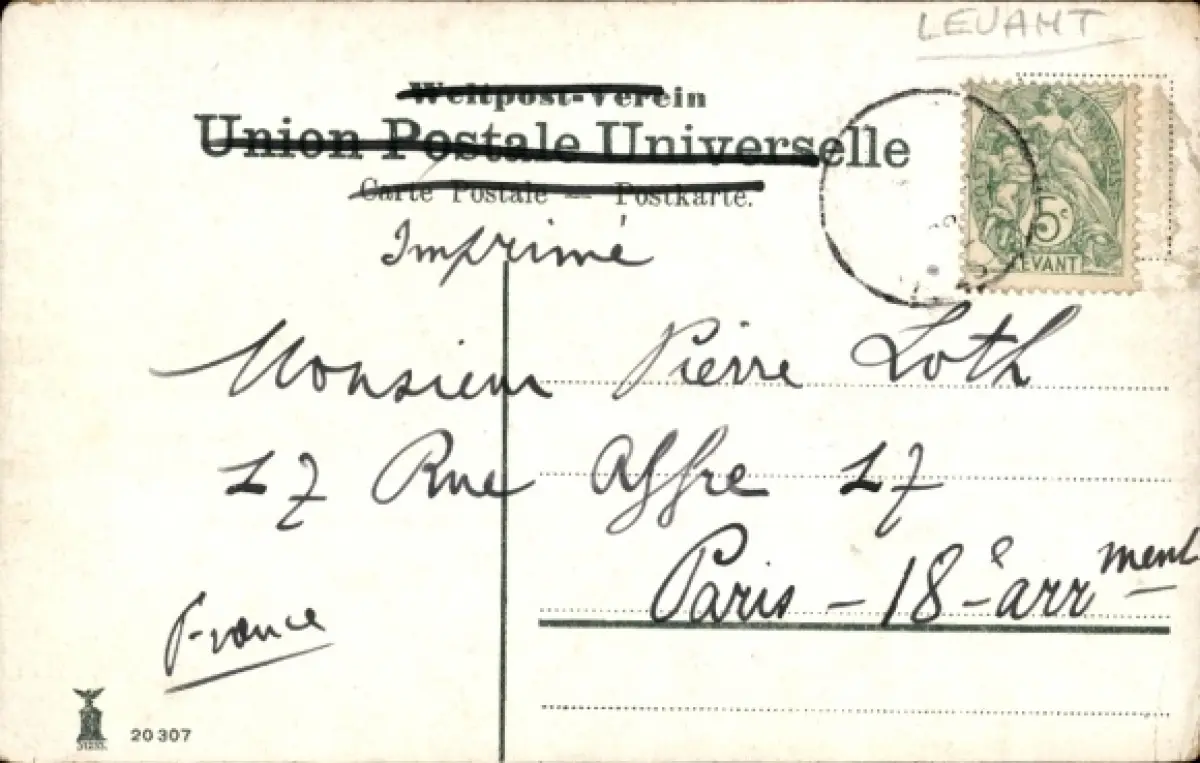 LEVANT
Weltpost-Verein
Union Postale Universelle
Carte Postale — Postkarte.
Imprimé
5c
LEVANT
Monsieur Pierre Loth
17 Rue Affre 17
Paris - 18e arrment
France
20307